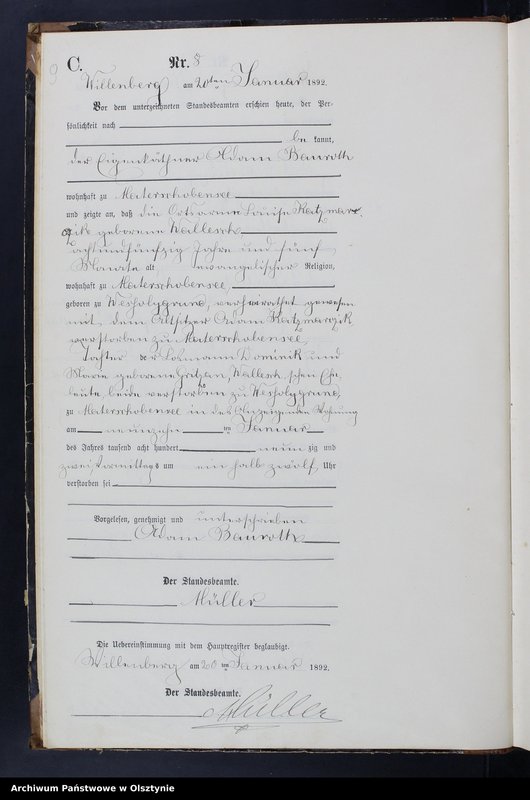 9
C.
Nr. 8
Willenberg am 20ten Januar 1892.
Vor dem unterzeichneten Standesbeamten erschien heute, der Per-
sönlichkeit nach
be kannt,
der Eigenkäthner Adam Bauroth
wohnhaft zu Materschobensee
und zeigte an, daß die Ortsarme Louise Katzmarc-
zik geborene Wallesch
achtundfünfzig Jahre und fünf
Monate alt evangelischer Religion,
wohnhaft zu Materschobensee,
geboren zu Wesholygrund, verheirathet gewesen
mit dem Altsitzer Adam Katzmarczik
verstorben zu Materschobensee,
Tochter der Losmann Dominik und
Marie geborene Gritzan, Wallesch'schen Ehe
leute beide verstorben zu Wesholygrund,
zu Materschobensee in des Anzeigenden Wohnung
am neunzehn ten Januar
des Jahres tausend acht hundert neun zig und
zwei Vormittags um ein halb zwölf, Uhr
verstorben sei
Vorgelesen, genehmigt und unterschrieben
Adam Bauroth
Der Standesbeamte.
Müller
Die Uebereinstimmung mit dem Hauptregister beglaubigt.
Willenberg am 20 ten Januar 1892.
Der Standesbeamte.
Müller
Archiwum Państwowe w Olsztynie